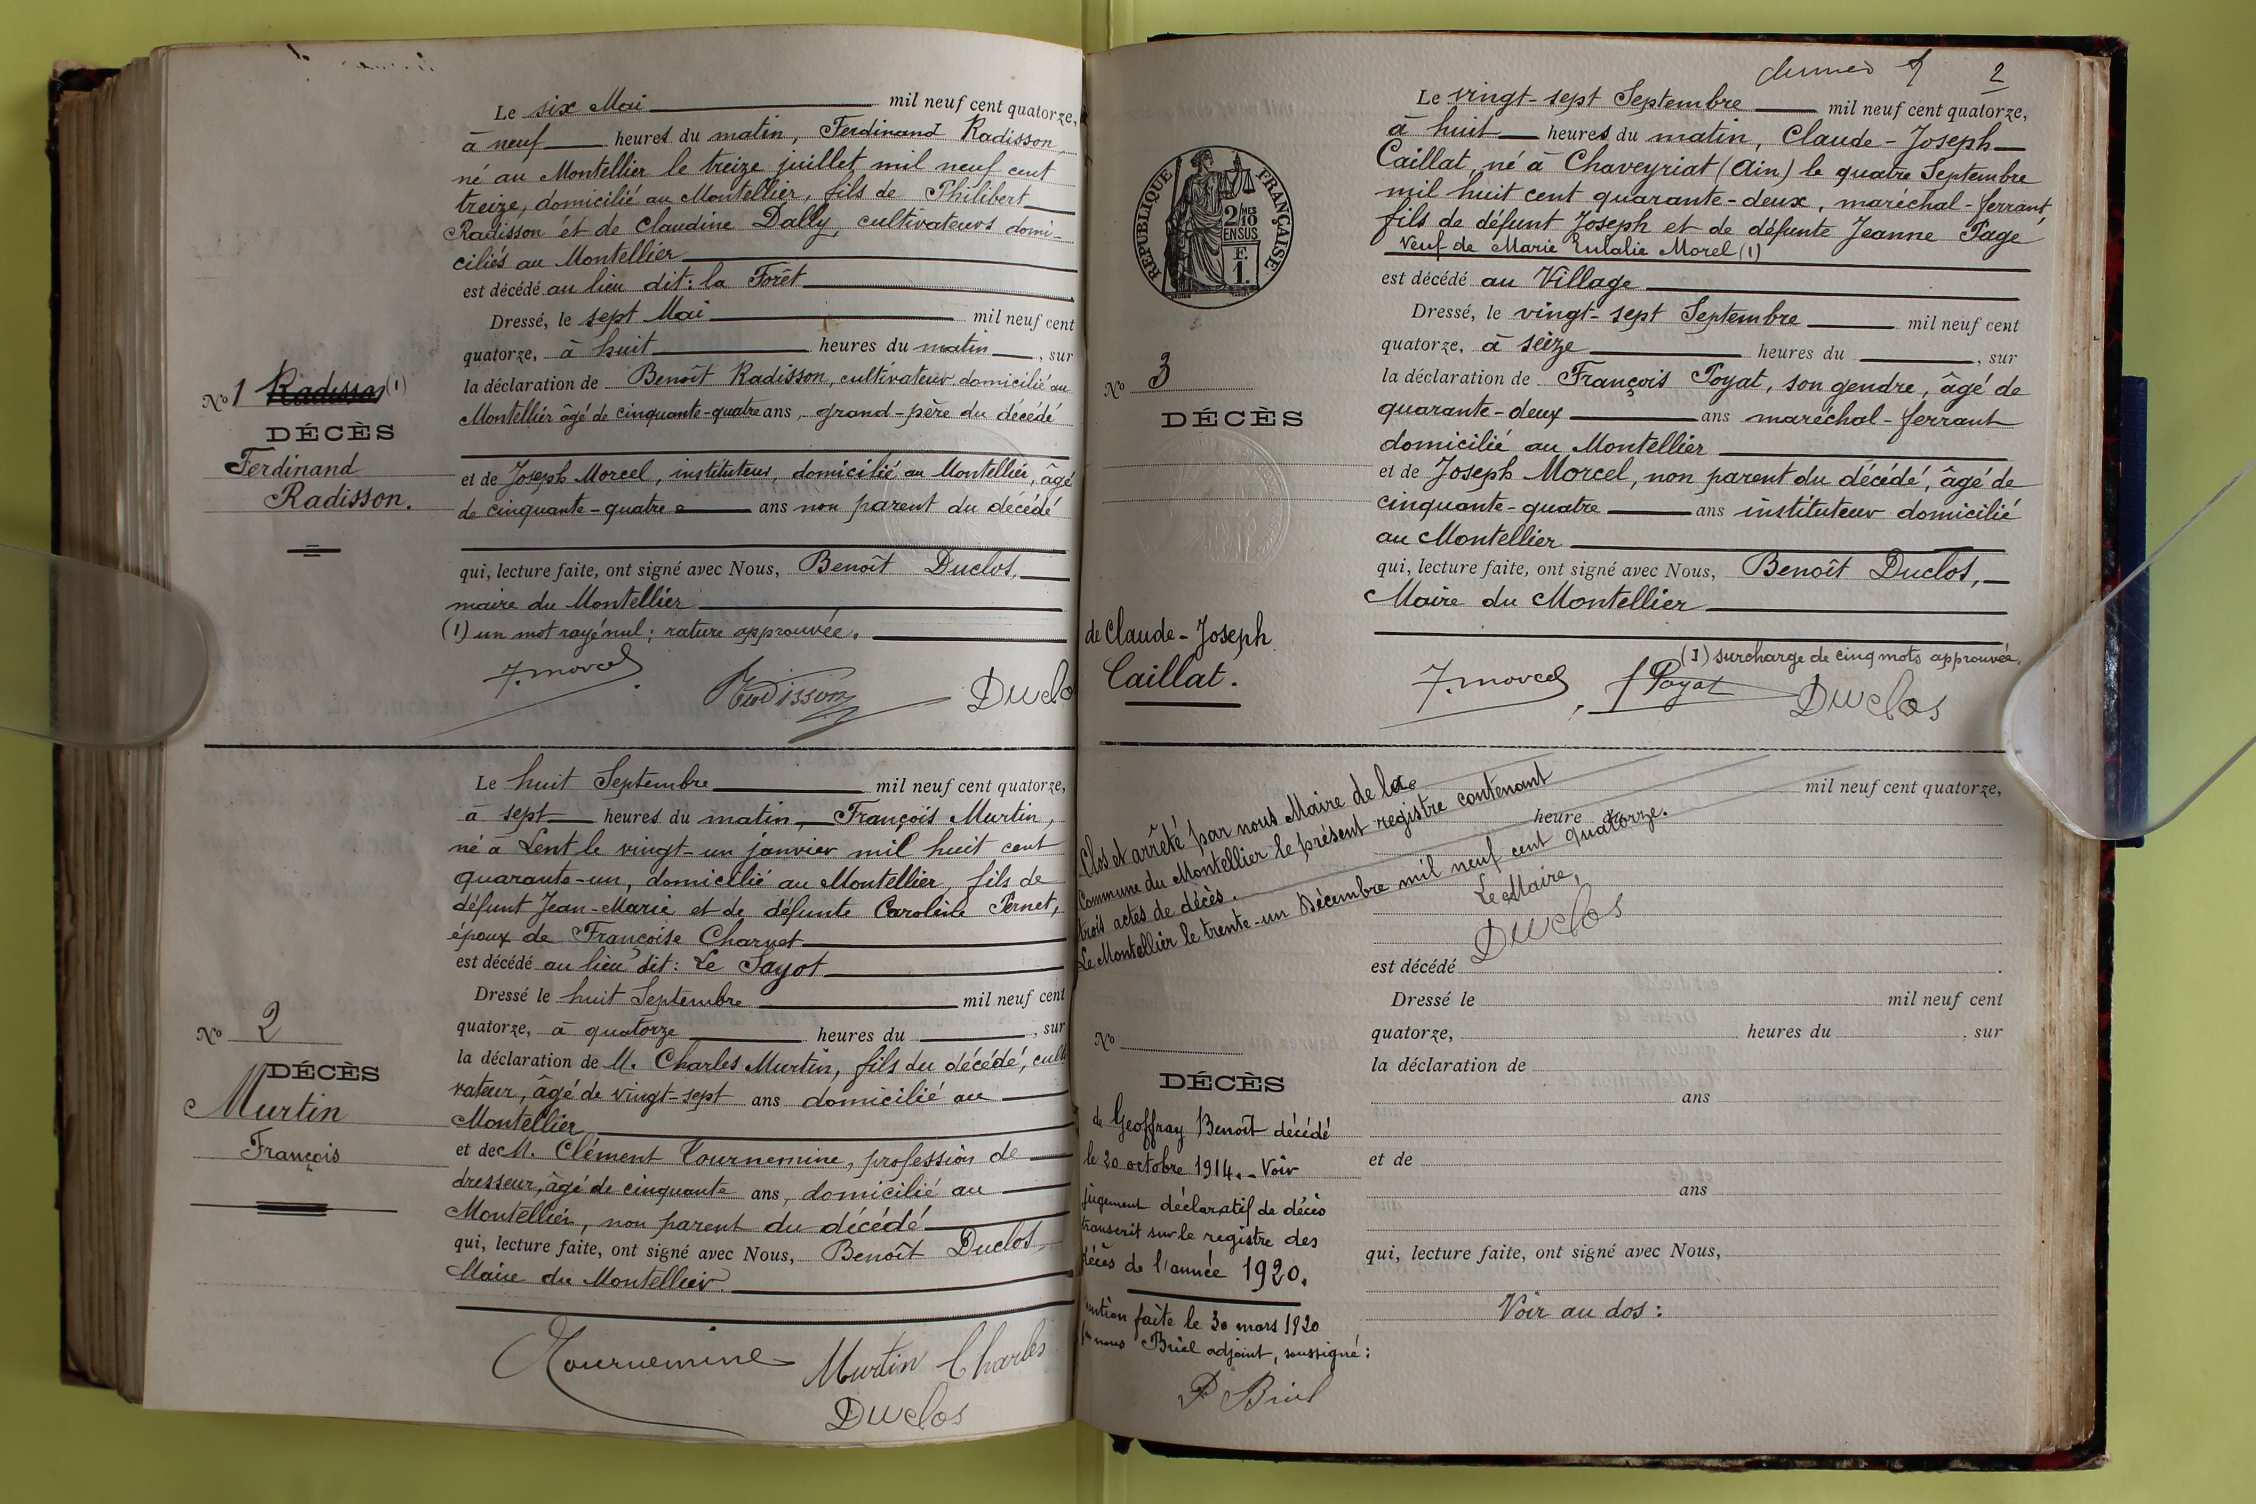 Le six Mai mil neuf cent quatorze,
à neuf heures du matin, Ferdinand Radisson
né au Montellier le treize juillet mil neuf cent
treize, domicilié au Montellier, fils de Philibert
Radisson et de Claudine Dally, cultivateurs domi-
ciliés au Montellier
est décédé au lieu dit : la Forêt
Dressé, le sept Mai mil neuf cent
quatorze, à huit heures du matin, sur
la déclaration de Benoît Radisson, cultivateur domicilié au
Montellier âgé de cinquante-quatre ans, grand-père du décédé
et de Joseph Morcel, instituteur, domicilié au Montellier, âgé
de cinquante-quatre ans non parent du décédé
qui, lecture faite, ont signé avec Nous, Benoît Duclos,
maire du Montellier
(1) un mot rayé nul ; rature approuvée.
J. Morcel Radisson Duclo
No 1 Radisson (1)
DÉCÈS
Ferdinand
Radisson.
Le huit Septembre mil neuf cent quatorze,
à sept heures du matin, François Murtin,
né à Lent le vingt-un janvier mil huit cent
quarante-un, domicilié au Montellier, fils de
défunt Jean-Marie et de défunte Caroline Pernet,
époux de Françoise Charvet
est décédé au lieu dit : Le Sayot
Dressé le huit Septembre mil neuf cent
quatorze, à quatorze heures du , sur
la déclaration de M. Charles Murtin, fils du décédé, culti
vateur, âgé de vingt-sept ans domicilié au
Montellier
et de M. Clément Tournemine, profession de
dresseur, âgé de cinquante ans, domicilié au
Montellier, non parent du décédé
qui, lecture faite, ont signé avec Nous, Benoît Duclos,
Maire du Montellier.
Tournemine Murtin Charles
Duclos
No 2
DÉCÈS
Murtin
François
2
Le vingt-sept Septembre mil neuf cent quatorze,
à huit heures du matin, Claude-Joseph
Caillat, né à Chaveyriat (Ain) le quatre Septembre
mil huit cent quarante-deux, maréchal-ferrant,
fils de défunt Joseph et de défunte Jeanne Page
Veuf de Marie Eulalie Morel (1)
est décédé au Village
Dressé, le vingt-sept Septembre mil neuf cent
quatorze, à seize heures du , sur
la déclaration de François Poyat, son gendre, âgé de
quarante-deux ans maréchal-ferrant
domicilié au Montellier
et de Joseph Morcel, non parent du décédé, âgé de
cinquante-quatre ans instituteur domicilié
au Montellier
qui, lecture faite, ont signé avec Nous, Benoît Duclos,
Maire du Montellier
(1) surcharge de cinq mots approuvée.
J. Morcel f Poyat Duclos
RÉPUBLIQUE FRANÇAISE
2/10MES
EN SUS
F.
1.
No 3
DÉCÈS
de Claude-Joseph
Caillat.
mil neuf cent quatorze,
heure du
Clos et arrêté par nous Maire de la
Commune du Montellier le présent registre contenant
trois actes de décès.
Le Montellier le trente-un Décembre mil neuf cent quatorze.
Le Maire,
Duclos
est décédé
Dressé le mil neuf cent
quatorze, heures du , sur
la déclaration de
ans
et de
ans
qui, lecture faite, ont signé avec Nous,
Voir au dos :
No
DÉCÈS
de Geoffray Benoît décédé
le 20 octobre 1914. - Voir
jugement déclaratif de décès
transcrit sur le registre des
décès de l'année 1920.
ention faite le 30 mars 1920
nous Briel adjoint, soussigné :
P Briel